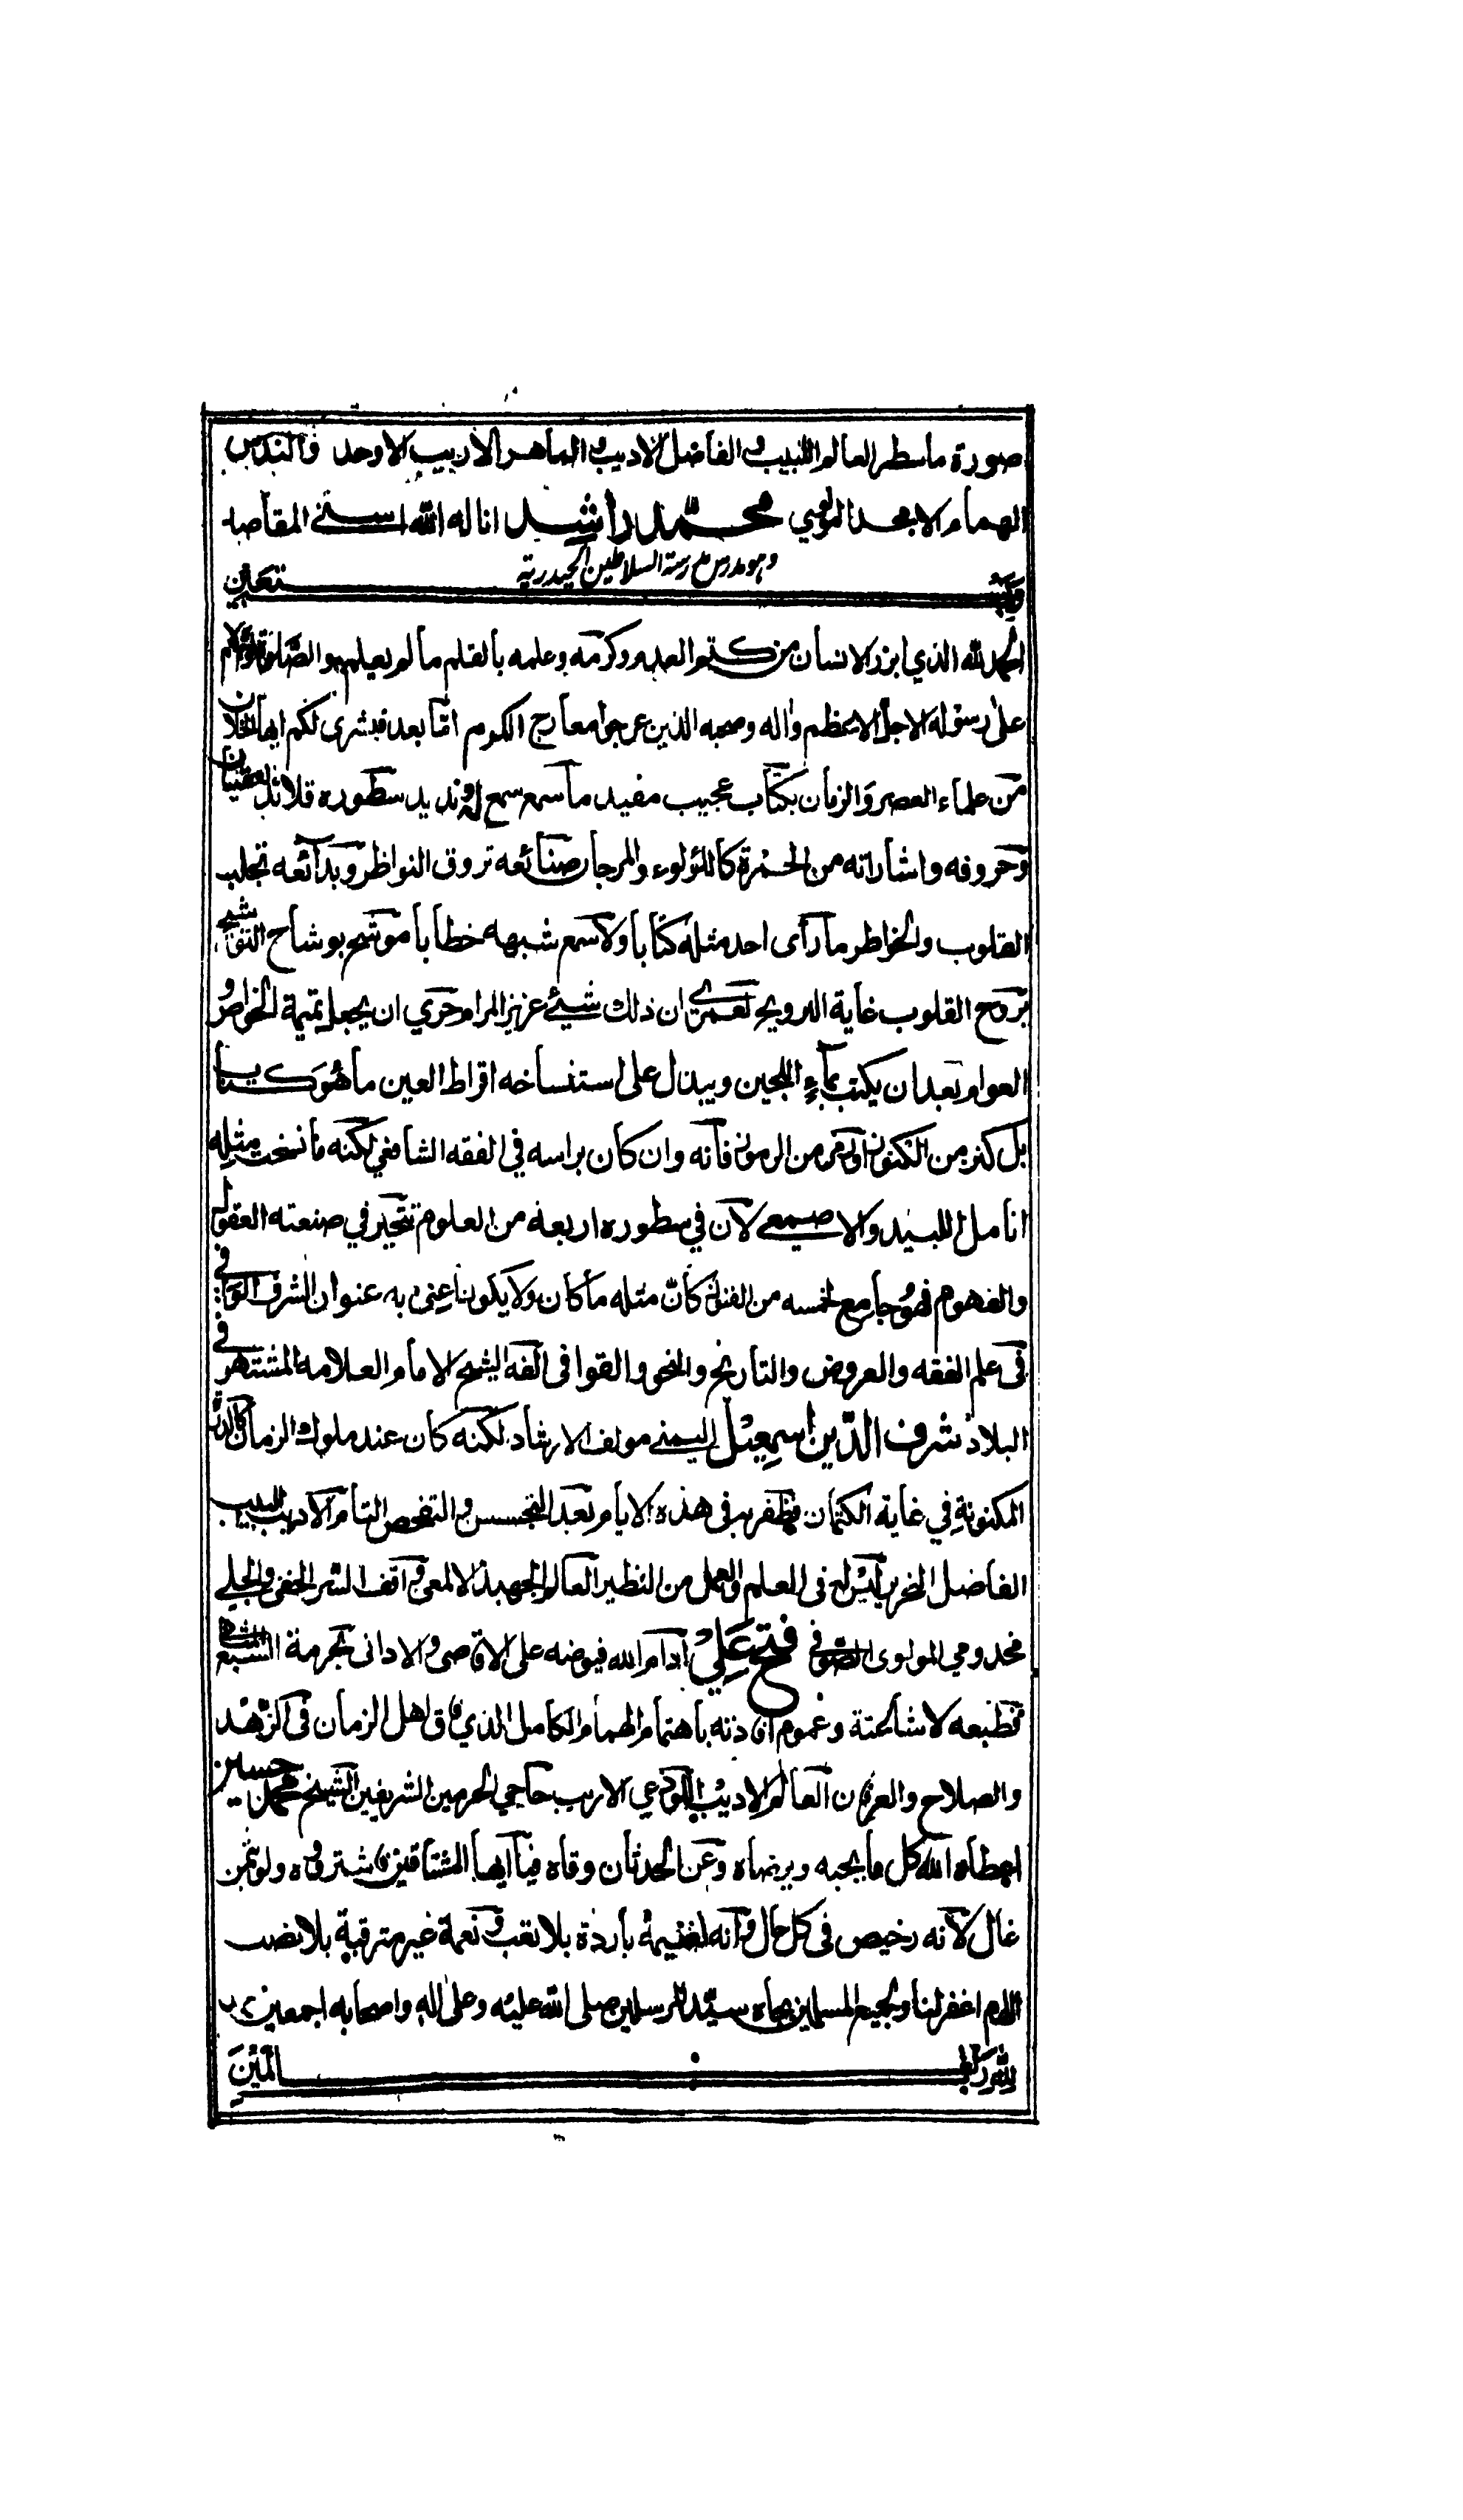 صورة ما سطر العالم اللبيب و الفاضل الاديب و الماهر الاريب الاوحد والندس
الهمام الامجد المولوي محمّد راشد اناله الله اسنے المقاصد
وهو مدرس مدرسة السلاطين الحيدرية
وبه نستعين
الحمد لله الذي ابرز الانسان من كتم العدم وكرمه وعلمه بالقلم ما لم يعلم والصلوة والسلام
على رسوله الاجل الاعظم واله وصحبه الذين عرجوا معارج الكرم امّا بعد فبشرى لكم ايها الخلان
من علماء العصر والزمان بكتاب عجيب مفيد ما سمع سمع له نديد سطوره قلائد العقيان
وحروفه واشاراته من الحمرة كاللؤلوء والمرجان صنائعه تروق النواظر وبدائعه تجلب
القلوب والخواطر ما رأى احد مثله كتابا ولا سمع شبهه خطابا موشح بوشاح التقاشيح
تروح القلوب غاية الترويح لعمري ان ذلك شيئ عزيز المرام حري ان يجعل تميمة الخواص و
العوام بعد ان يكتب بماء اللجين ويبذل على استنساخه اقراط العين ما هو كتاب
بل كنز من الكنوز او رمز من الرموز فانه وان كان براسه في الفقه الشافعي لكنه ما نسخت مثله
انامل اللبيد والاصمعي لان في سطوره اربعة من العلوم تتحير في صنعته العقول
والفهوم فهو جامع لخمسه من الفنون كأنّ مثله ما كان ولا يكون اعنى به عنوان الشرف الوافي
فى علم الفقه والعروض والتاريخ والنحو والقوافى الفه الشيخ الامام العلامة المشتهر في
البلاد شرف الدّين اسمعيل اليمني مولف الارشاد لكنه كان عند ملوك الزمان كالدرّ
المكنونة في غاية الكتمان فظفر به فى هذه الايام بعد التجسس والتفحص التام الاديب اللبيب
الفاضل الذى ليس له فى العلم والعمل من النظير العالم الجهبذ الالمعي واقف السر الخفي والجلي
مخدومي المولوى الصوفي فتح علي ادام الله فيوضه على الاقاصى والادانى بحرمة السبع المثاني
فطبعه لاشاعته وعموم افادته باهتمام الهمام الكامل الذي فاق اهل الزمان فى الزهد
والصلاح والعرفان العالم الاديب اللوذعي الاريب حاجي الحرمين الشريفين الشيخ محمد حسين
اعطاه الله كل ما يحبه ويرضاه وعن الحدثان وقاه فيا ايها المشتاقين فاشتروه ولو بثمن
غال لانه رخيص فى كل حال وانه لغنيمة باردة بلا تعب ونعمة غير مترقبة بلا نصب
اللهم اغفر لنا ولجميع المسلمين بجاه سيّد المرسلين صلى الله عليه وعلى اله واصحابه اجمعين
امين